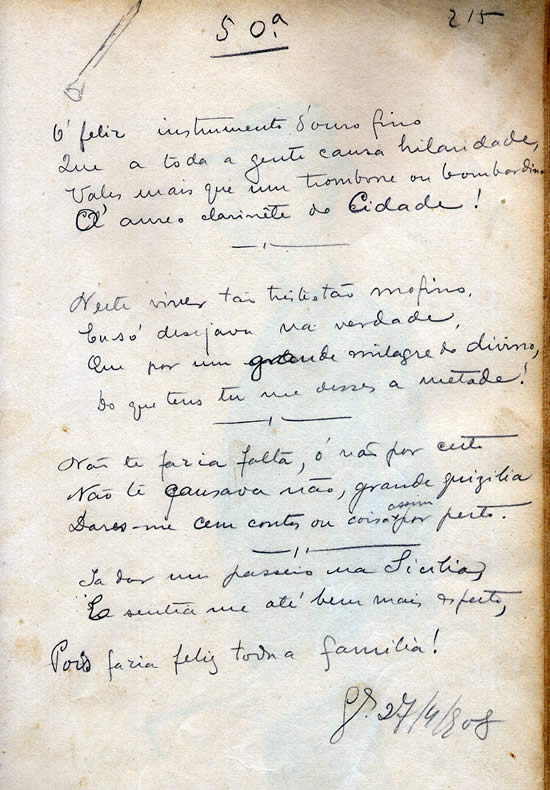 50ª
215
Ó feliz instrumento d'ouro fino
Que a toda a gente causa hilaridade,
Vales mais que um trombone ou bombardino
Ó aureo clarinete do Cidade!
Neste viver tão triste tão mofino,
Eu só desejava na verdade,
Que por um grande milagre do divino,
Do que tens tu me desses a metade!
Não te fazia falta, ó não por certo
Não te causava não, grande quizilia
Dares-me cem contos ou coisa assim por perto.
Ia dar um passeio na Sicilia,
E sentia me até bem mais esperto,
Pois faria feliz toda a familia!
27/4/908